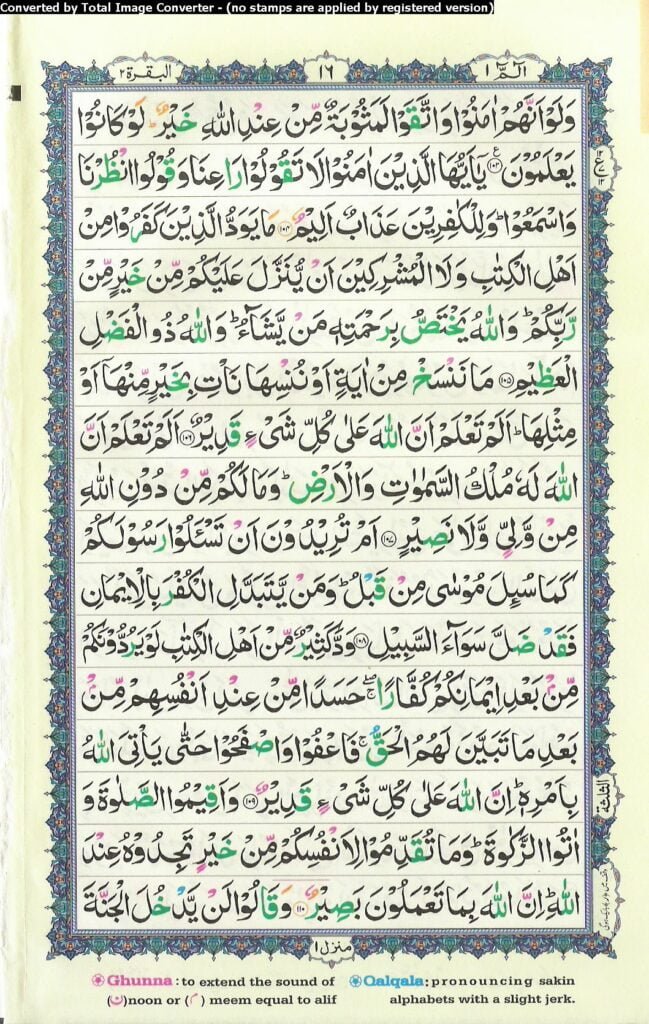 Converted by Total Image Converter - (no stamps are applied by registered version)
الٓمّٓ ١
١٦
البقرة ٢
وَلَوْ اَنَّهُمْ اٰمَنُوْا وَاتَّقَوْا لَمَثُوْبَةٌ مِّنْ عِنْدِ اللّٰهِ خَيْرٌ ؕ لَوْ كَانُوْا
يَعْلَمُوْنَ ۝۱۰۳ يٰۤاَيُّهَا الَّذِيْنَ اٰمَنُوْا لَا تَقُوْلُوْا رَاعِنَا وَقُوْلُوا انْظُرْنَا
وَاسْمَعُوْا ؕ وَلِلْكٰفِرِيْنَ عَذَابٌ اَلِيْمٌ ۝۱۰۴ مَا يَوَدُّ الَّذِيْنَ كَفَرُوْا مِنْ
اَهْلِ الْكِتٰبِ وَلَا الْمُشْرِكِيْنَ اَنْ يُّنَزَّلَ عَلَيْكُمْ مِّنْ خَيْرٍ مِّنْ
رَّبِّكُمْ ؕ وَاللّٰهُ يَخْتَصُّ بِرَحْمَتِهٖ مَنْ يَّشَآءُ ؕ وَاللّٰهُ ذُو الْفَضْلِ
الْعَظِيْمِ ۝۱۰۵ مَا نَنْسَخْ مِنْ اٰيَةٍ اَوْ نُنْسِهَا نَاْتِ بِخَيْرٍ مِّنْهَاۤ اَوْ
مِثْلِهَا ؕ اَلَمْ تَعْلَمْ اَنَّ اللّٰهَ عَلٰى كُلِّ شَیْءٍ قَدِيْرٌ ۝۱۰۶ اَلَمْ تَعْلَمْ اَنَّ
اللّٰهَ لَهٗ مُلْكُ السَّمٰوٰتِ وَالْاَرْضِ ؕ وَمَا لَكُمْ مِّنْ دُوْنِ اللّٰهِ
مِنْ وَّلِیٍّ وَّلَا نَصِيْرٍ ۝۱۰۷ اَمْ تُرِيْدُوْنَ اَنْ تَسْـَٔلُوْا رَسُوْلَكُمْ
كَمَا سُىِٕلَ مُوْسٰى مِنْ قَبْلُ ؕ وَمَنْ يَّتَبَدَّلِ الْكُفْرَ بِالْاِيْمَانِ
فَقَدْ ضَلَّ سَوَآءَ السَّبِيْلِ ۝۱۰۸ وَدَّ كَثِيْرٌ مِّنْ اَهْلِ الْكِتٰبِ لَوْ يَرُدُّوْنَكُمْ
مِّنْۢ بَعْدِ اِيْمَانِكُمْ كُفَّارًا ۖۚ حَسَدًا مِّنْ عِنْدِ اَنْفُسِهِمْ مِّنْۢ
بَعْدِ مَا تَبَيَّنَ لَهُمُ الْحَقُّ ۚ فَاعْفُوْا وَاصْفَحُوْا حَتّٰى يَاْتِیَ اللّٰهُ
بِاَمْرِهٖ ؕ اِنَّ اللّٰهَ عَلٰى كُلِّ شَیْءٍ قَدِيْرٌ ۝۱۰۹ وَاَقِيْمُوا الصَّلٰوةَ وَ
اٰتُوا الزَّكٰوةَ ؕ وَمَا تُقَدِّمُوْا لِاَنْفُسِكُمْ مِّنْ خَيْرٍ تَجِدُوْهُ عِنْدَ
اللّٰهِ ؕ اِنَّ اللّٰهَ بِمَا تَعْمَلُوْنَ بَصِيْرٌ ۝۱۱۰ وَقَالُوْا لَنْ يَّدْخُلَ الْجَنَّةَ
الثلثة
منزل ١
Ghunna : to extend the sound of
(ن) noon or (م) meem equal to alif
Qalqala: pronouncing sakin
alphabets with a slight jerk.